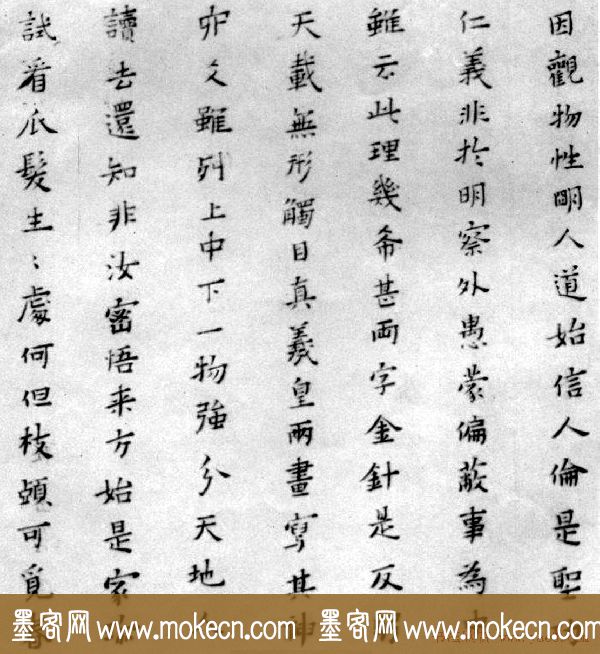 因觀物性明人道始信人倫是聖
仁義非於明察外愚蒙偏蔽事為
雖云此理幾希甚兩字金針是反
天載無形觸目真羲皇兩畫寫其神
雖列上中下一物強分天地
讀去還知非汝密悟来方始是家
試看爪髮生〻處何但枝頭可覓春
墨客网 www.mokecn.com 墨客网 www.mokecn.com